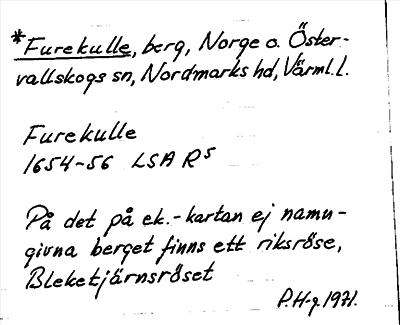 *Furekulle, berg, Norge o. Öster-
vallskogs sn, Nordmarks hd, Värml.l.
Furekulle
1654-56 LSA R5
På det på ek.-kartan ej namn-
givna berget finns ett riksröse,
Bleketjärnsröset
P.H-g. 1971.